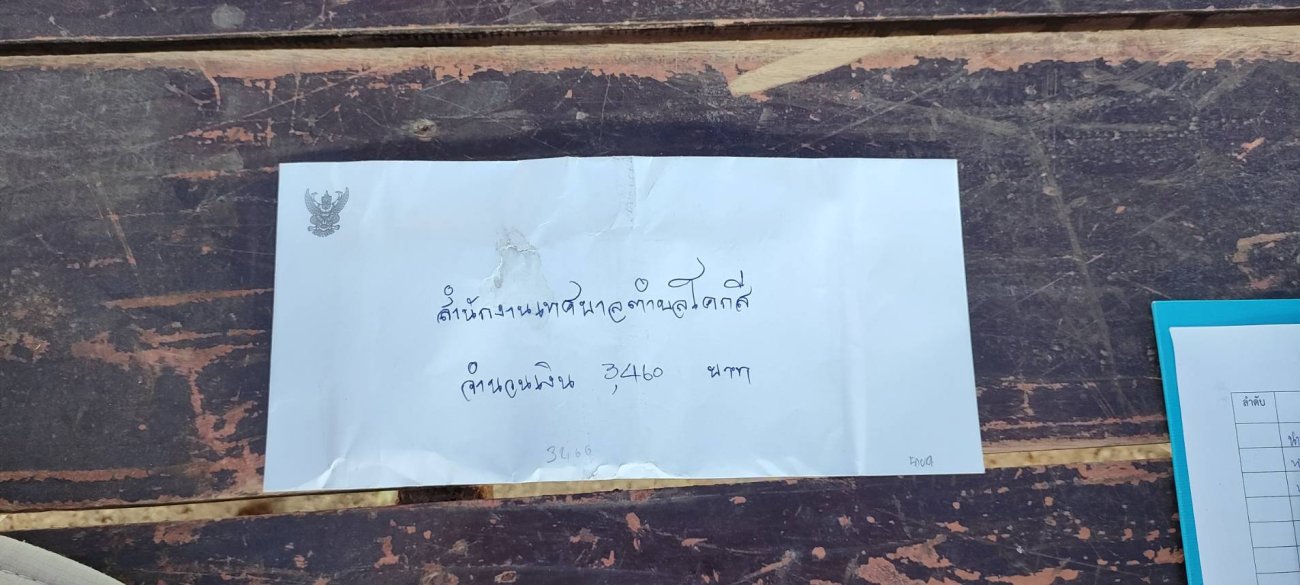 สำนักงานเทศบาลตำบลโคกสี
จำนวนเงิน 3,460 บาท
3460
ลำดับ